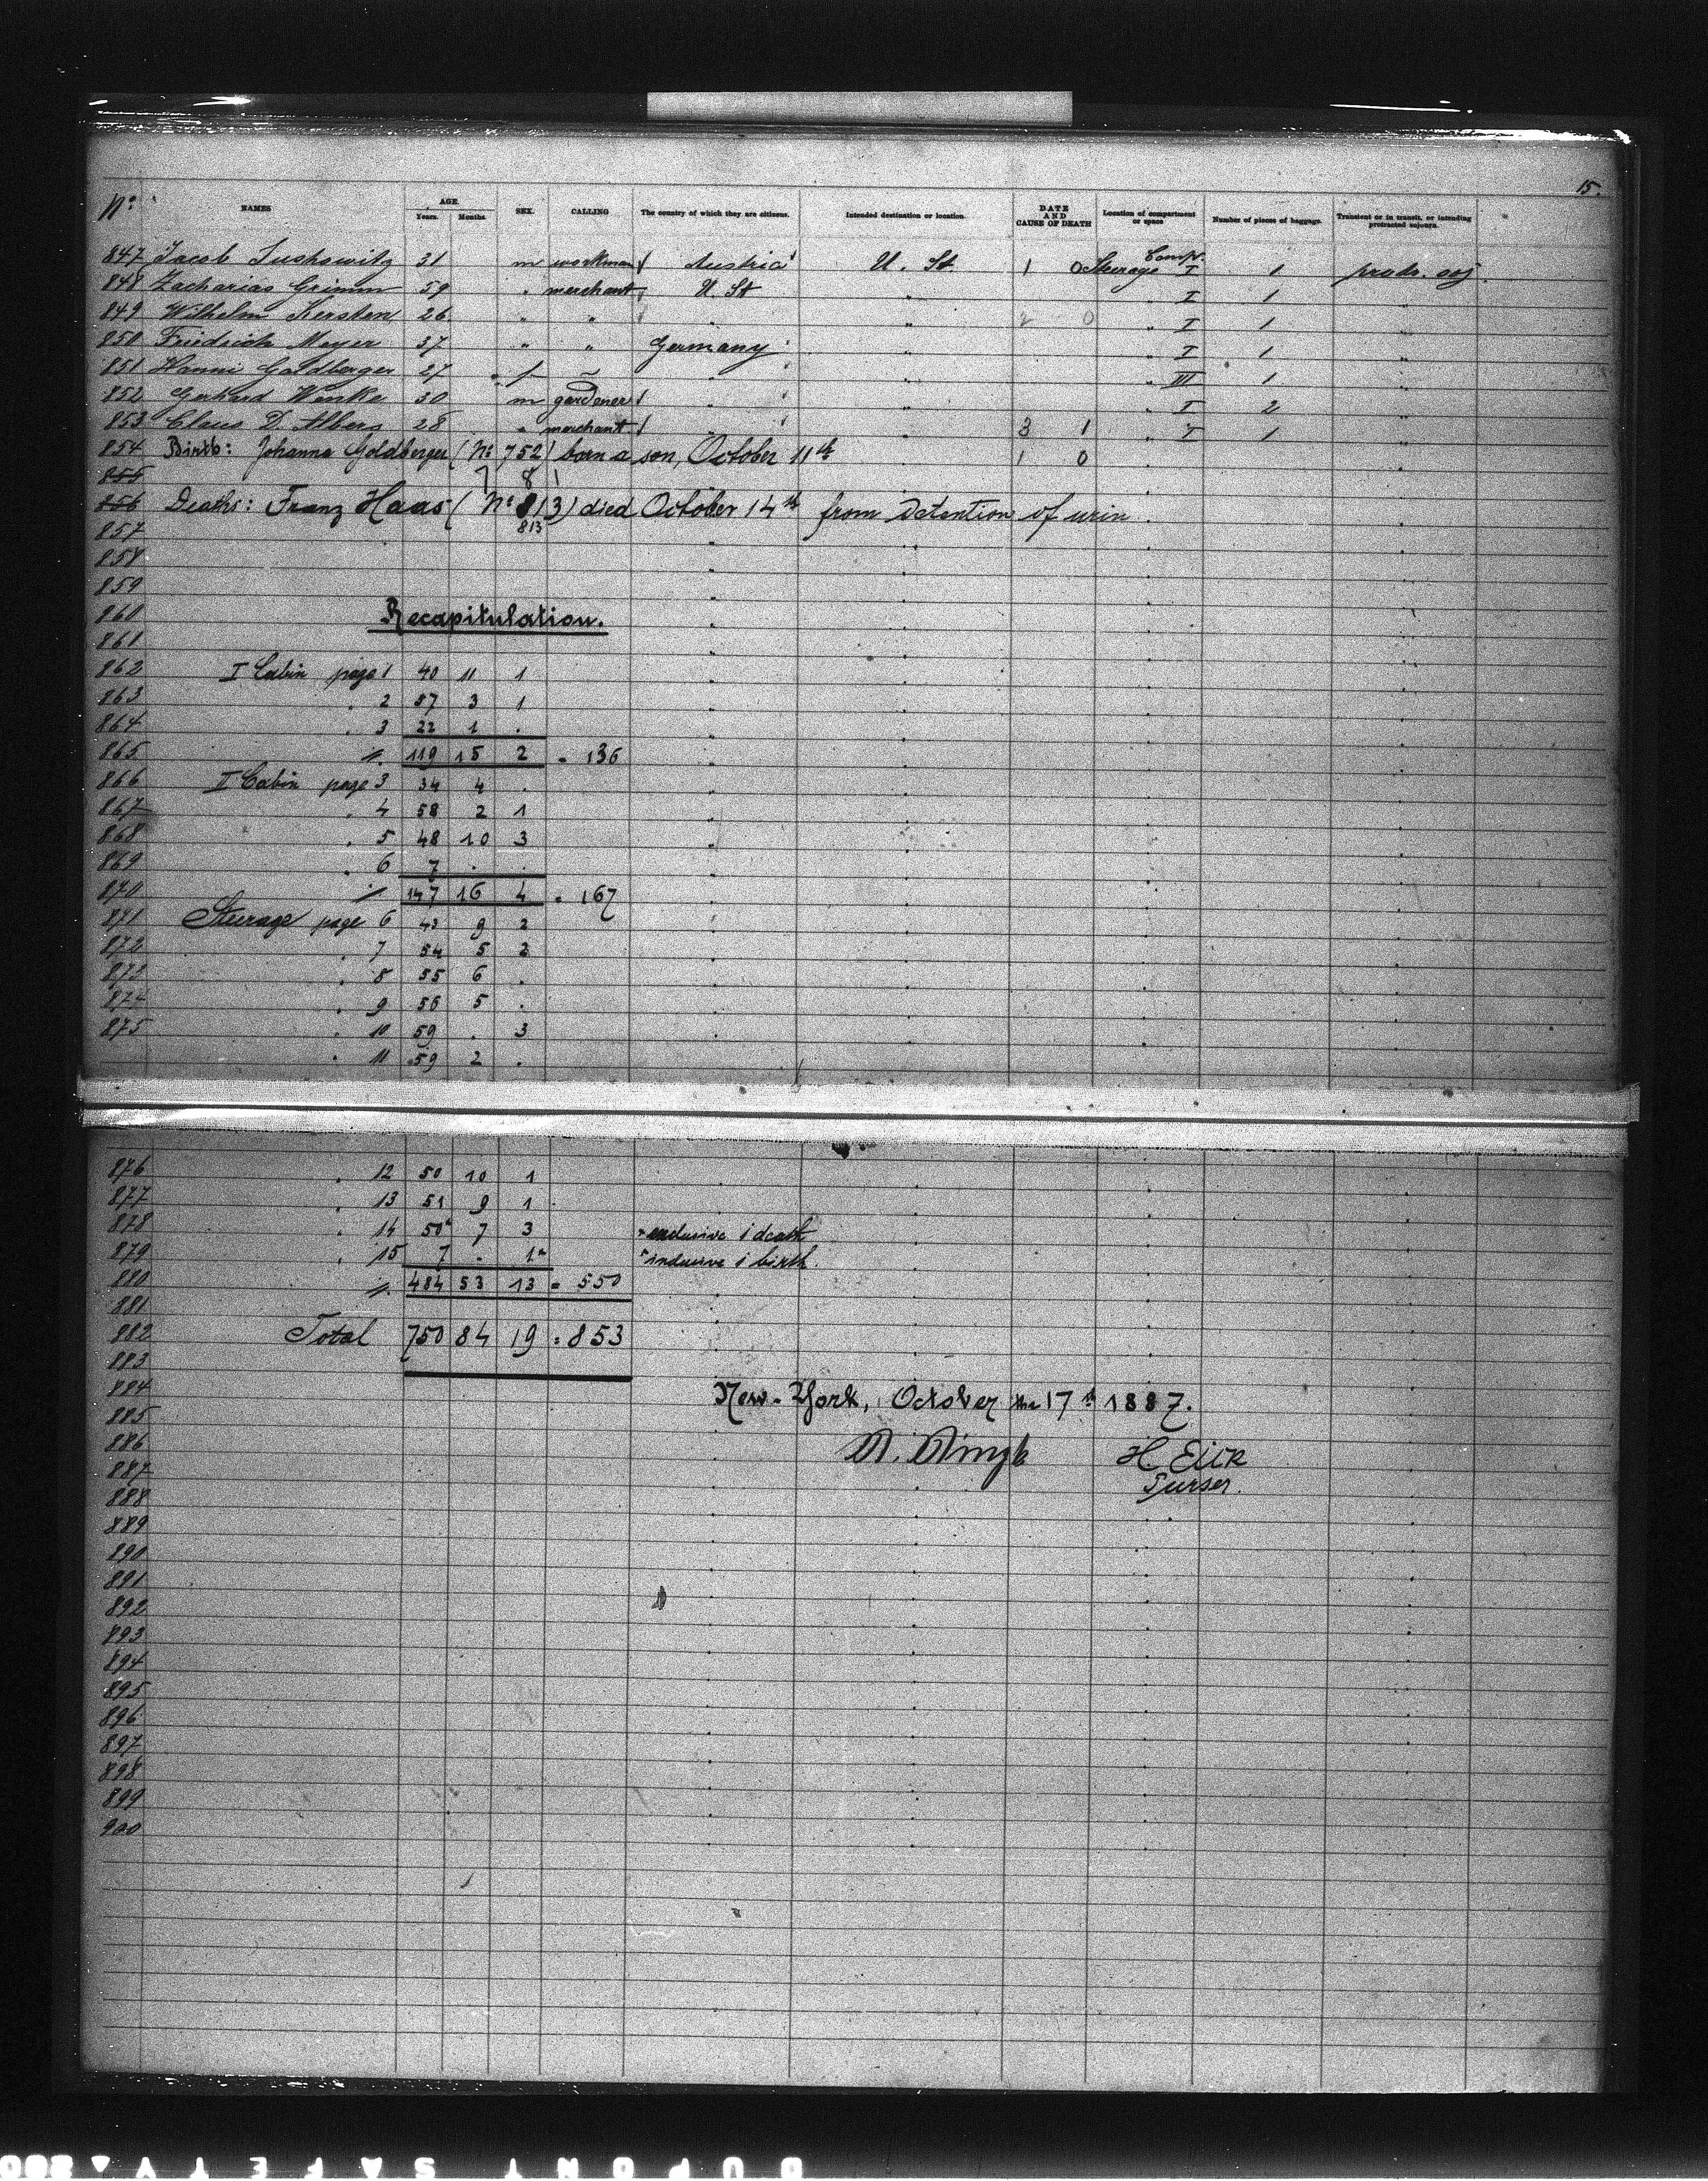 15.
No. NAMES AGE. Years. Months. SEX. CALLING The country of which they are citizens. Intended destination or location. DATE AND CAUSE OF DEATH Location of compartment or space Number of pieces of baggage. Transient or in transit, or intending protracted sojourn.
847 Jacob 31 m workman Austria U. St. 1 0 Steerage Comp. I 1 protr. soj.
848 Zacharias Grimm 59 " merchant U. St " " I 1 "
849 Wilhelm Kersten 26 " " " " 2 0 " I 1 "
850 Friedrich Meyer 37 " " Germany " " I 1 "
851 Hanni Goldberger 27 f ~ " " " III 1 "
852 Gerhard Wenke 30 m gardener " " " I 2 "
853 Claus D. Albers 28 " merchant " " 3 1 " I 1 "
854 Birth: Johanna Goldberger (No. 752) born a son, October 11th 1 0
855 7 8 1
856 Deaths: Franz Haas (No. 813) died October 14th from Detention of urin.
857 813
858
859
860 Recapitulation.
861
862 I Cabin page 1 40 11 1
863 " 2 57 3 1
864 " 3 22 1 .
865 119 15 2 = 136
866 II Cabin page 3 34 4 .
867 " 4 58 2 1
868 " 5 48 10 3
869 " 6 7 . .
870 147 16 4 = 167
871 Steerage page 6 43 9 2
872 " 7 54 5 3
873 " 8 55 6 .
874 " 9 56 5 .
875 " 10 59 . 3
" 11 59 2 .
876 " 12 50 10 1
877 " 13 51 9 1
878 " 14 50* 7 3 * exclusive 1 death
879 " 15 7 . 1" " inclusive 1 birth.
880 484 53 13 = 550
881
882 Total 750 84 19 = 853
883
884 New-York, October the 17th 1887.
885
886 H. Eick
887 Purser.
888
889
890
891
892
893
894
895
896
897
898
899
900
DUPONT SAFETY